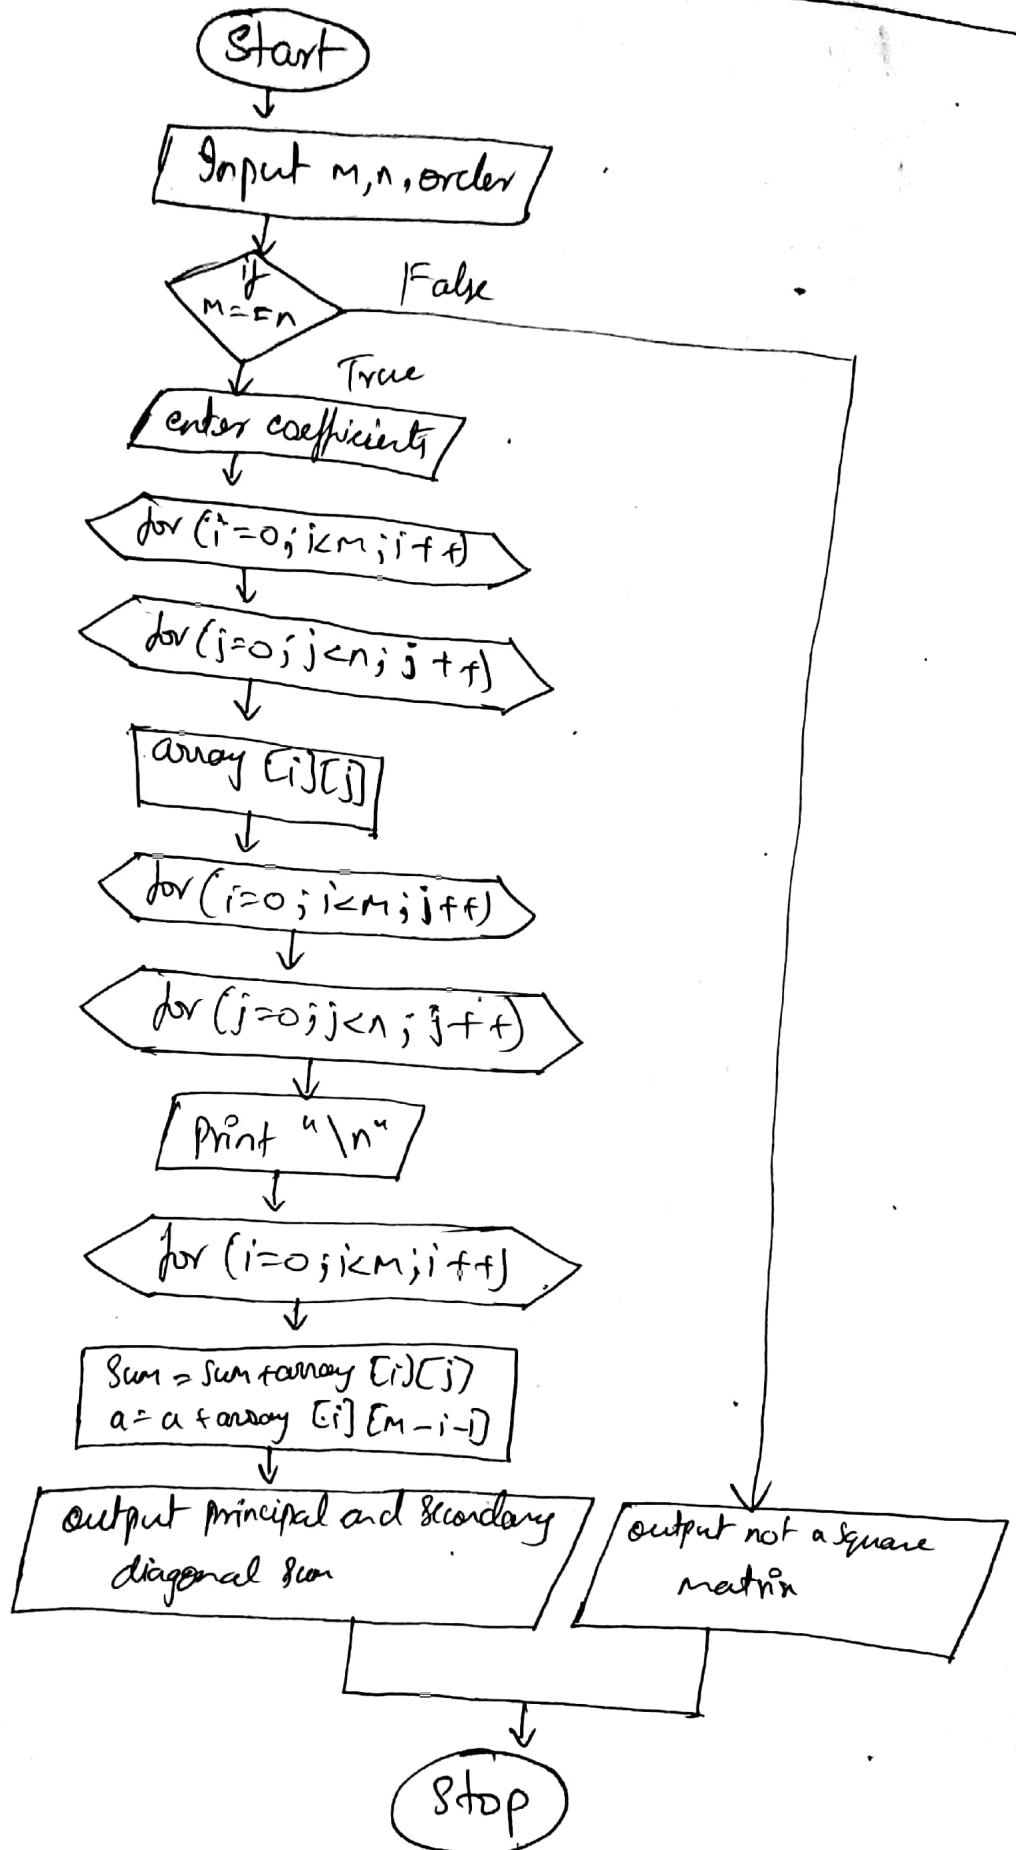 Start
Input m,n,order
if
m==n
False
True
enter coefficients
for (i=0; i<m; i++)
for (j=0; j<n; j++)
array [i][j]
for (i=0; i<m; j++)
for (j=0; j<n; j++)
Print "\n"
for (i=0; i<m; i++)
Sum = sum+array [i][j]
a = a + array [i] [m-i-1]
output principal and secondary
diagonal sum
output not a square
matrix
Stop